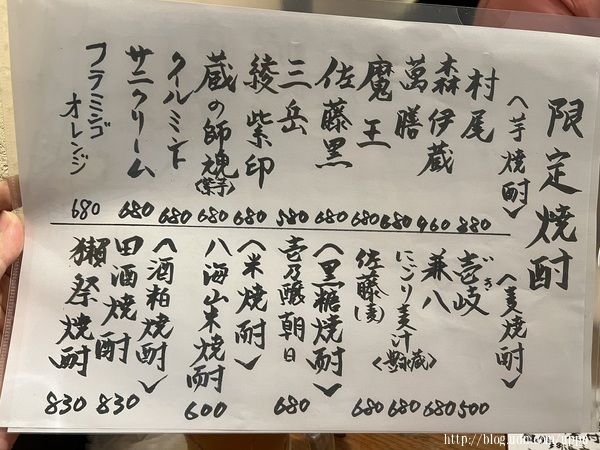 限定焼酎
〈芋焼酎〉
村尾 880
森伊蔵 960
萬膳 680
魔王 680
佐藤黒 680
三岳 580
綾紫印 680
蔵の師魂〈紫芋〉 680
クールミント 680
サニークリーム 680
フラミンゴオレンジ 680
〈麦焼酎〉
壱岐 いき 500
兼八 680
にごり麦汁 680
佐藤(麦) 680
〈黒糖焼酎〉
壱乃醸朝日 680
〈米焼酎〉
八海山米焼酎 600
〈酒粕焼酎〉
田酒焼酎 830
獺祭焼酎 830